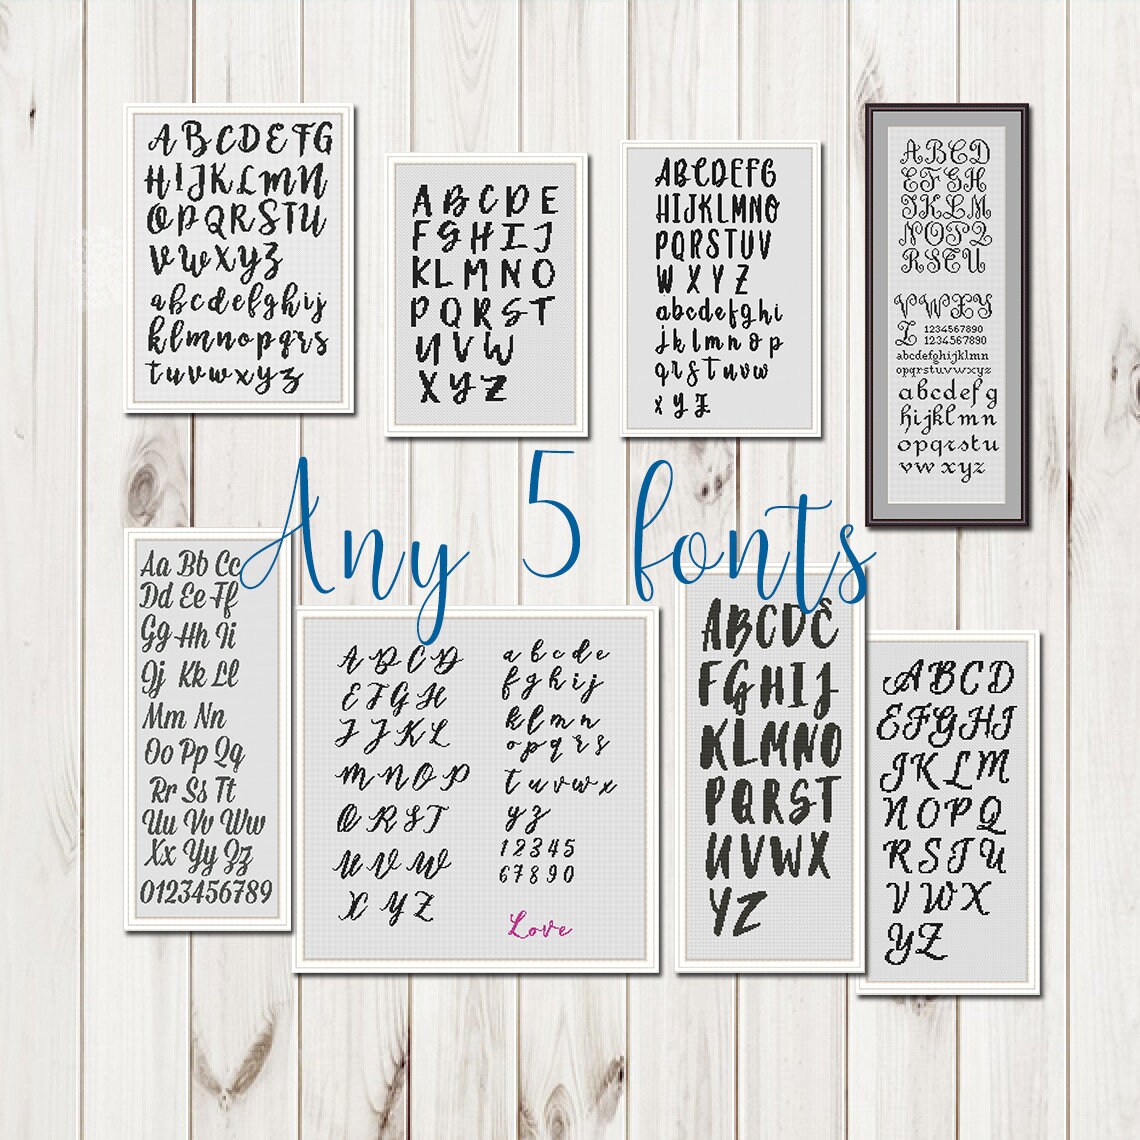 ABCDEFG
HIJKLMN
OPQRSTU
VWXYZ
abcdefghij
klmnopqrs
tuvwxyz
ABCDE
FGHIJ
KLMNO
PQRST
UVW
XYZ
ABCDEFG
HIJKLMNO
PQRSTUV
WXYZ
abcdefghi
jklmnop
qrstuvw
xyz
ABCD
EFGH
IJKLM
NOPQ
RSTU
VWXY
Z 1234567890
1234567890
abcdefghijklmn
opqrstuvwxyz
abcdefg
hijklmn
opqrstu
vwxyz
Any 5 fonts
Aa Bb Cc
Dd Ee Ff
Gg Hh Ii
Jj Kk Ll
Mm Nn
Oo Pp Qq
Rr Ss Tt
Uu Vv Ww
Xx Yy Zz
0123456789
A B C D
E F G H
I J K L
M N O P
Q R S T
U V W
X Y Z
a b c d e
f g h i j
k l m n
o p q r s
t u v w x
y z
1 2 3 4 5
6 7 8 9 0
Love
ABCDE
FGHIJ
KLMNO
PQRST
UVWX
YZ
ABCD
EFGHI
JKLM
NOPQ
RSTU
VWX
YZ